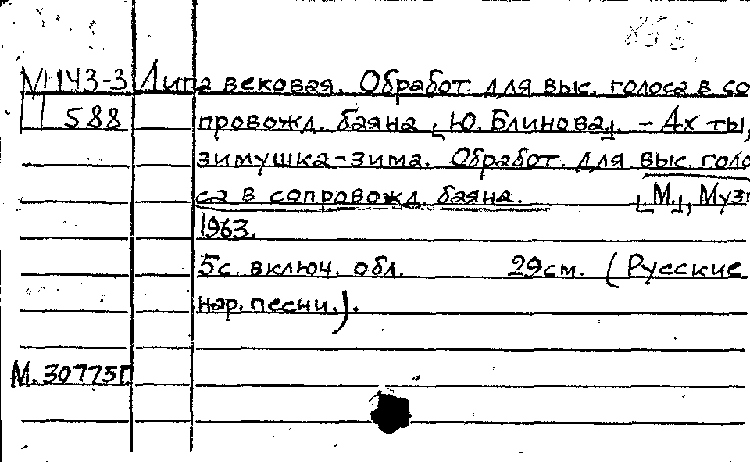 855
М 143-3 Липа вековая. Обработ. для выс. голоса в со
588 провожд. баяна [Ю. Блинова]. - Ах ты,
зимушка-зима. Обработ. для выс. голо
са в сопровожд. баяна. [М.], Музг
1963.
5с. включ. обл. 29см. (Русские
нар. песни.).
М.30775г.